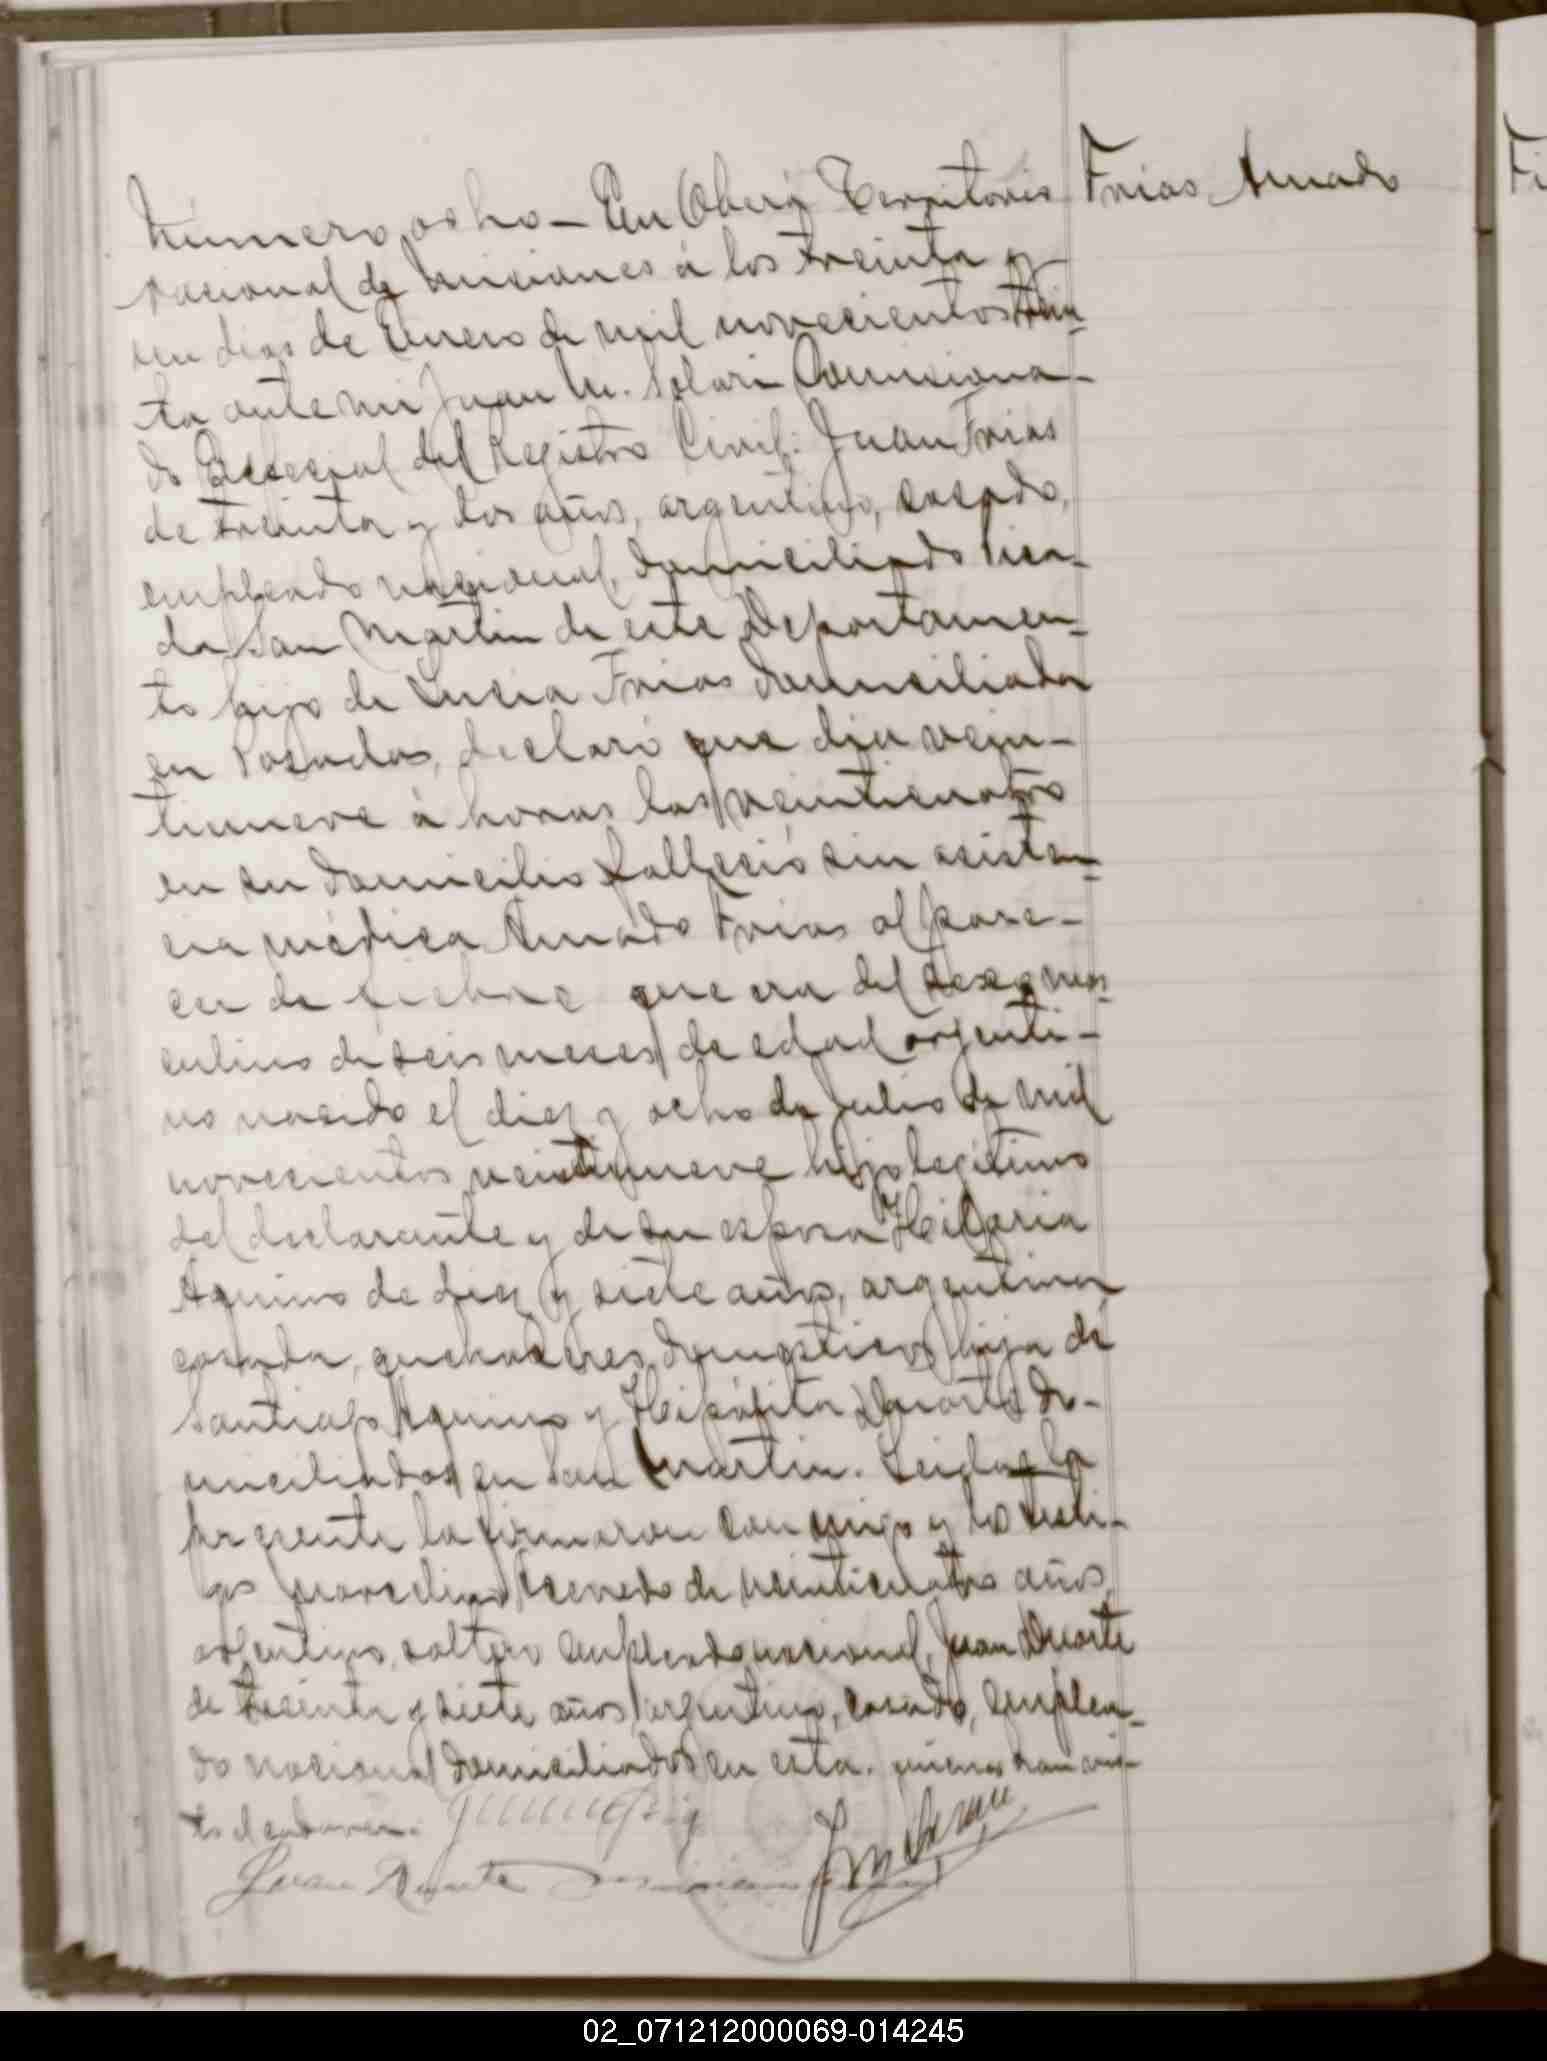 Frias Amado
Número ocho — En Oberá Territorio
nacional de Misiones á los treinta y
un dias de Enero de mil novecientos trein-
ta ante mi Juan M. Solari Comisiona-
do Especial del Registro Civil: Juan Frias
de treinta y dos años, argentino, casado,
empleado nacional, domiciliado
San Martin de este Departamen-
to hijo de Lucia Frias domiciliada
en Posadas, declaró que dia vein-
tinueve á horas las veinticuatro
en su domicilio falleció sin asisten-
cia médica Amado Frias al pare-
cer de fiebre que era del sexo mas-
culino de seis meses de edad argenti-
no nacido el diez y ocho de Julio de mil
novecientos veintinueve hijo legitimo
del declarante y de su esposa Hilaria
Aquino de diez y siete años, argentina
casada, quehaceres domesticos hija de
Santiago Aquino y Hipólita Duarte do-
miciliados en San Martin. Leida la
presente la firmaron con migo y los testi-
gos Marcelino Acevedo de veinticuatro años,
argentino, soltero empleado nacional, Juan Duarte
de treinta y siete años argentino, casado, emplea-
do nacional domiciliados en esta. quienes han vis-
to el cadaver.
Juan Duarte
02_071212000069-014245